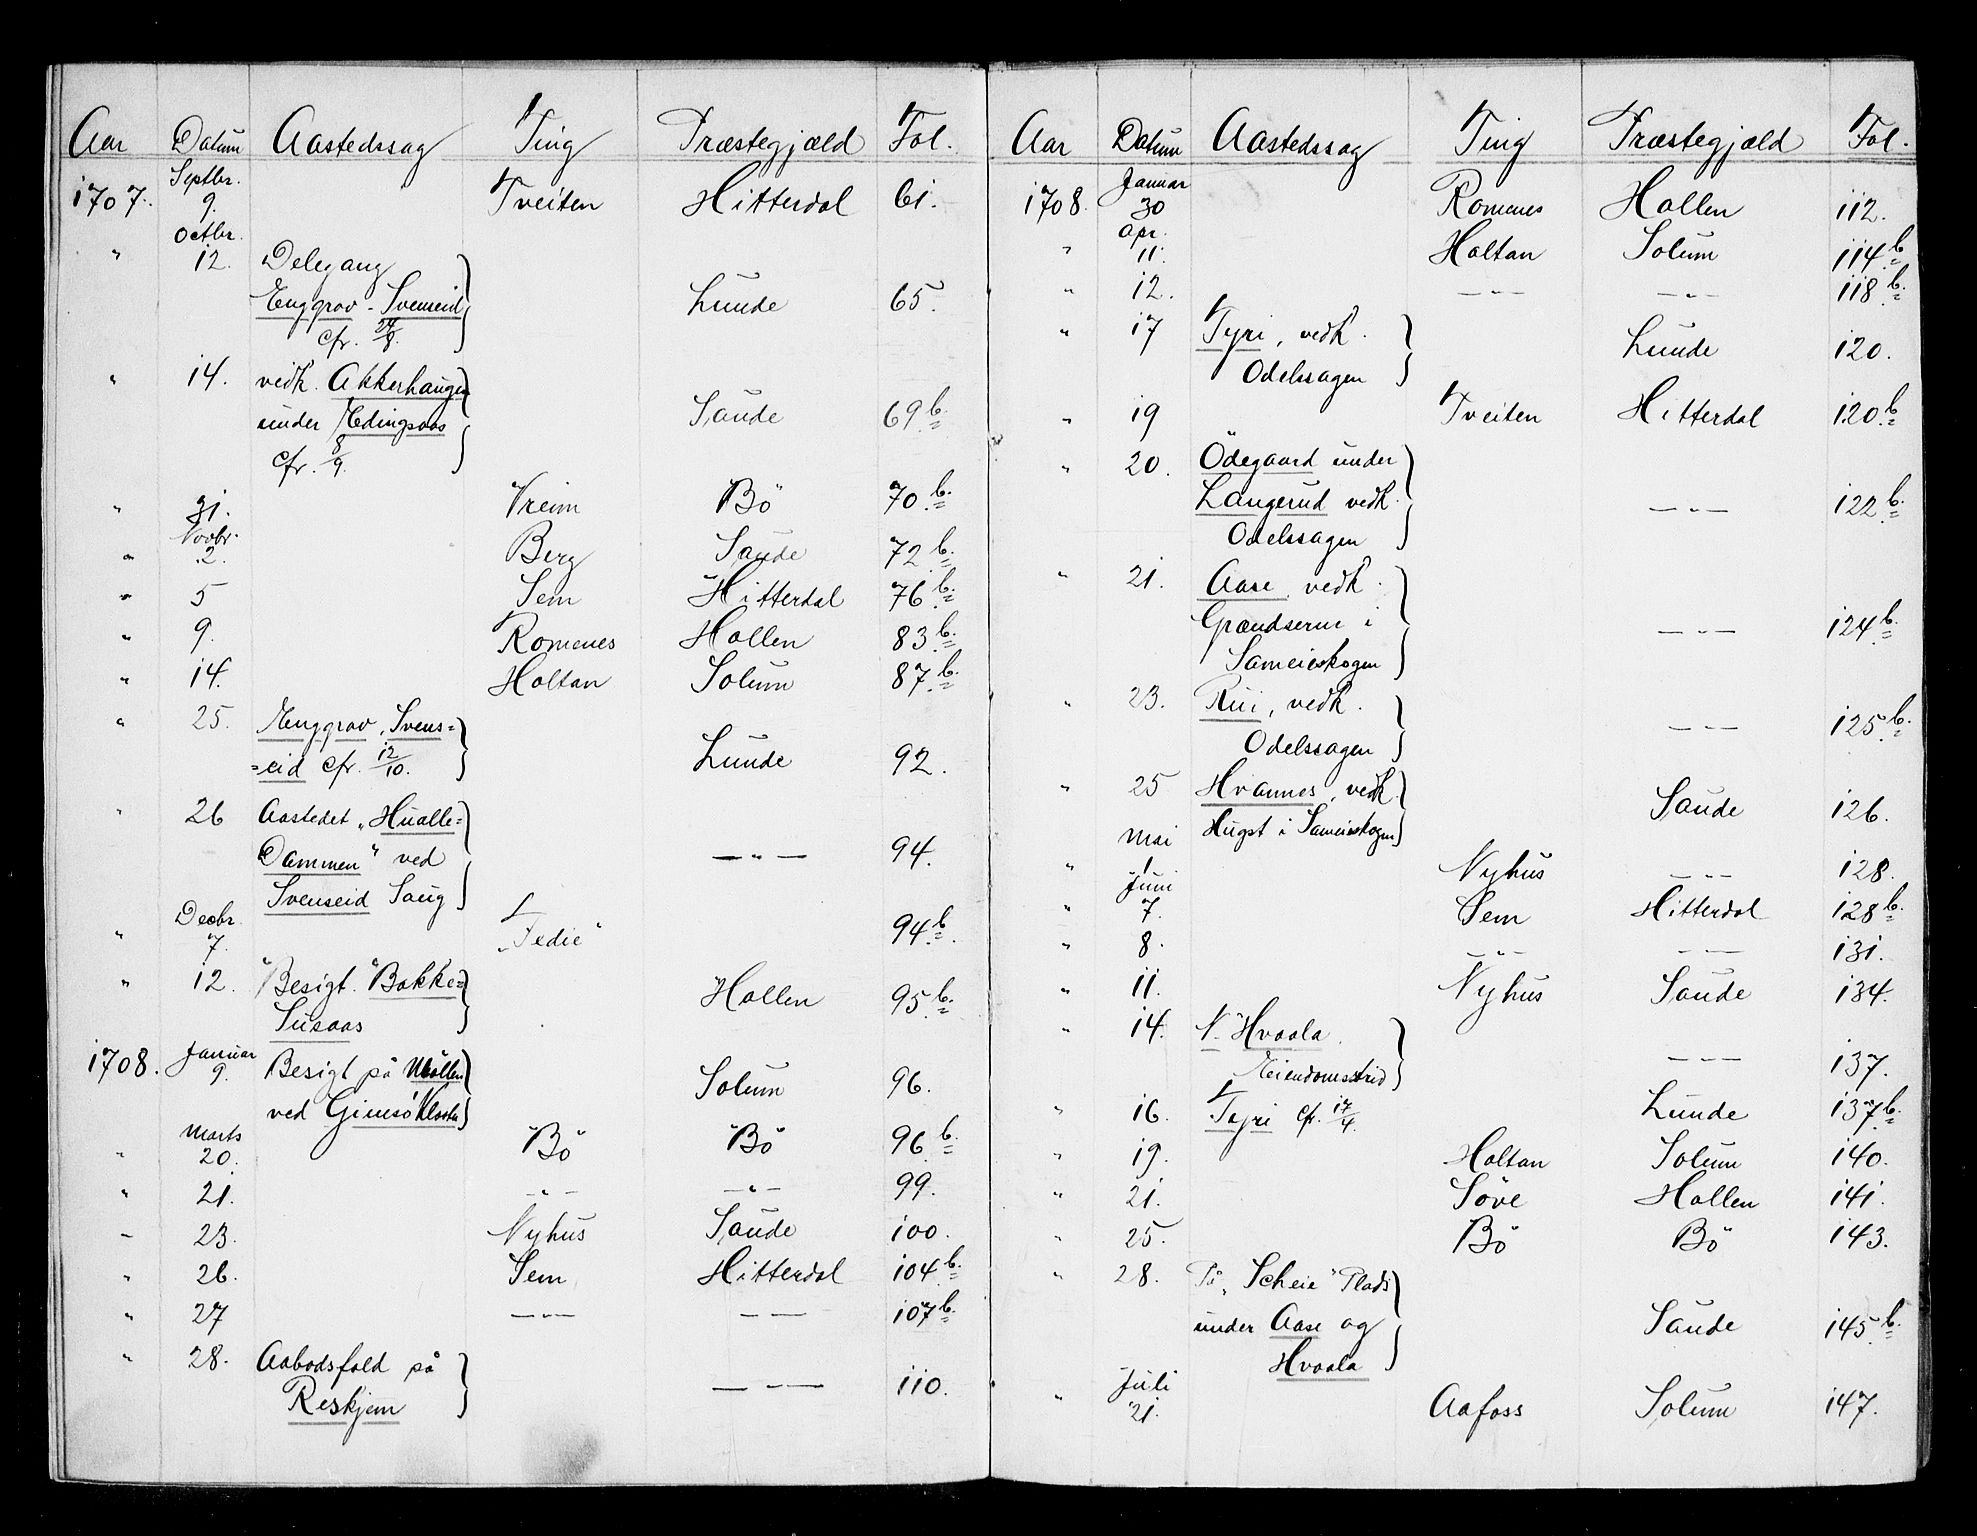 Aar Datum Aastedssag Ting Præstegjæld Fol.
Septbr.
1707. 9. Tveiten Hitterdal 61.
Octbr.
" 12. Delegang
Enggrav - Svenseid Lunde 65.
cfr. 24/8.
" 14. vedk. Akkerhaugen
under Edingsaas Saude 69 b.
cfr. 8/9.
" 31. Vreim Bö 70. b.
Novbr.
" 2. Berg Saude 72 b.
" 5 Sem Hitterdal 76 b.
" 9. Romenes Hollen 83 b.
" 14. Holtan Solum 87. b.
" 25. Enggrav, Svens=
=eid cfr. 12/10. Lunde 92.
" 26 Aastedet „Hualle=
Dammen" ved — " — 94.
Svenseid Saug
Decbr.
" 7. „Fedie" 94. b.
" 12. Besigt. Bakke=
Susaas Hollen 95 b.
1708. Januar 9. Besigt på Möllen Solum 96.
ved Gimsö Kloster
Marts
" 20. Bö Bö 96 b.
" 21. - " - - " - 99.
" 23. Nyhus Saude 100.
" 26. Sem Hitterdal 104 b.
" 27 — " — — " — 107 b.
" 28. Aabodsfald på
Reskjem — " — 110.
Aar Datum Aastedssag Ting Præstegjæld Fol.
Januar
1708. 30 Romenes Hollen 112.
Apr.
" 11. Holtan Solum 114 b.
" 12. — " — — " — 118 b.
" 17 Tyri, vedk.
Odelssagen Lunde 120.
" 19 Tveiten Hitterdal 120. b.
" 20. Ödegaard under
Langerud vedk. — " — 122 b.
Odelssagen
" 21. Aase vedk.
Grændserne i — " — 124 b.
Sameieskogen
" 23. Rui, vedk.
Odelssagen — " — 125 b.
" 25 Hvannes, vedk.
Hugst i Sameieskogen Saude 126.
Mai
" 1 Nyhus — " — 128.
Juni
" 7. Sem Hitterdal 128 b.
" 8. — " — — " — 131.
" 11. Nyhus Saude 134.
" 14. N. Hvaala
Eiendomsstrid — " — 137.
" 16. Tyri cfr. 17/4. Lunde 137 b.
" 19. Holtan Solum 140.
" 21. Söve Hollen 141.
" 25. Bö Bö 143.
" 28. På „Scheie" Plads
under Aase og Saude 145 b.
Hvaala
Juli
" 21. Aafoss Solum 147.